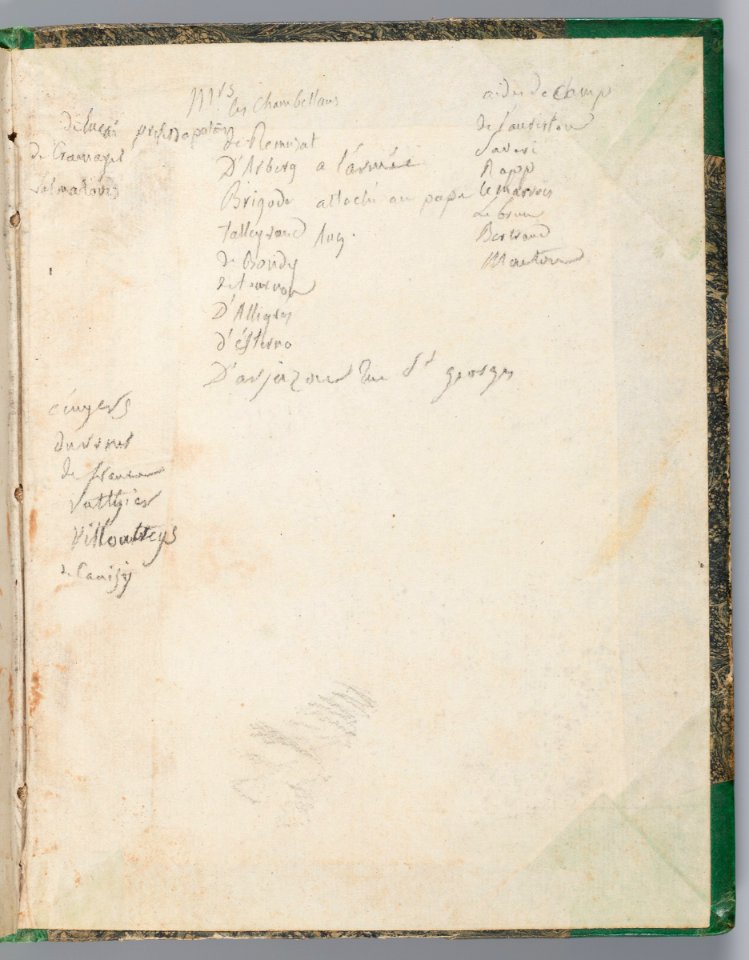 Mrs
les Chambellans
de Luçai préfet du palais
de Cramayel
de Remusat
D'Arberg a l'armée
Brigode attaché au pape
Talleyrand Aug.
de Bondy
de tournon
D'Alligre
d'ésterno
D'arjuzon rue St georges
aides de Camp
de Lauriston
Savari
Rapp
le marrois
Le brun
Bertrand
Mouton
écuyers
durosnel
de france
Vatthier
Villoutreys
de Canisy